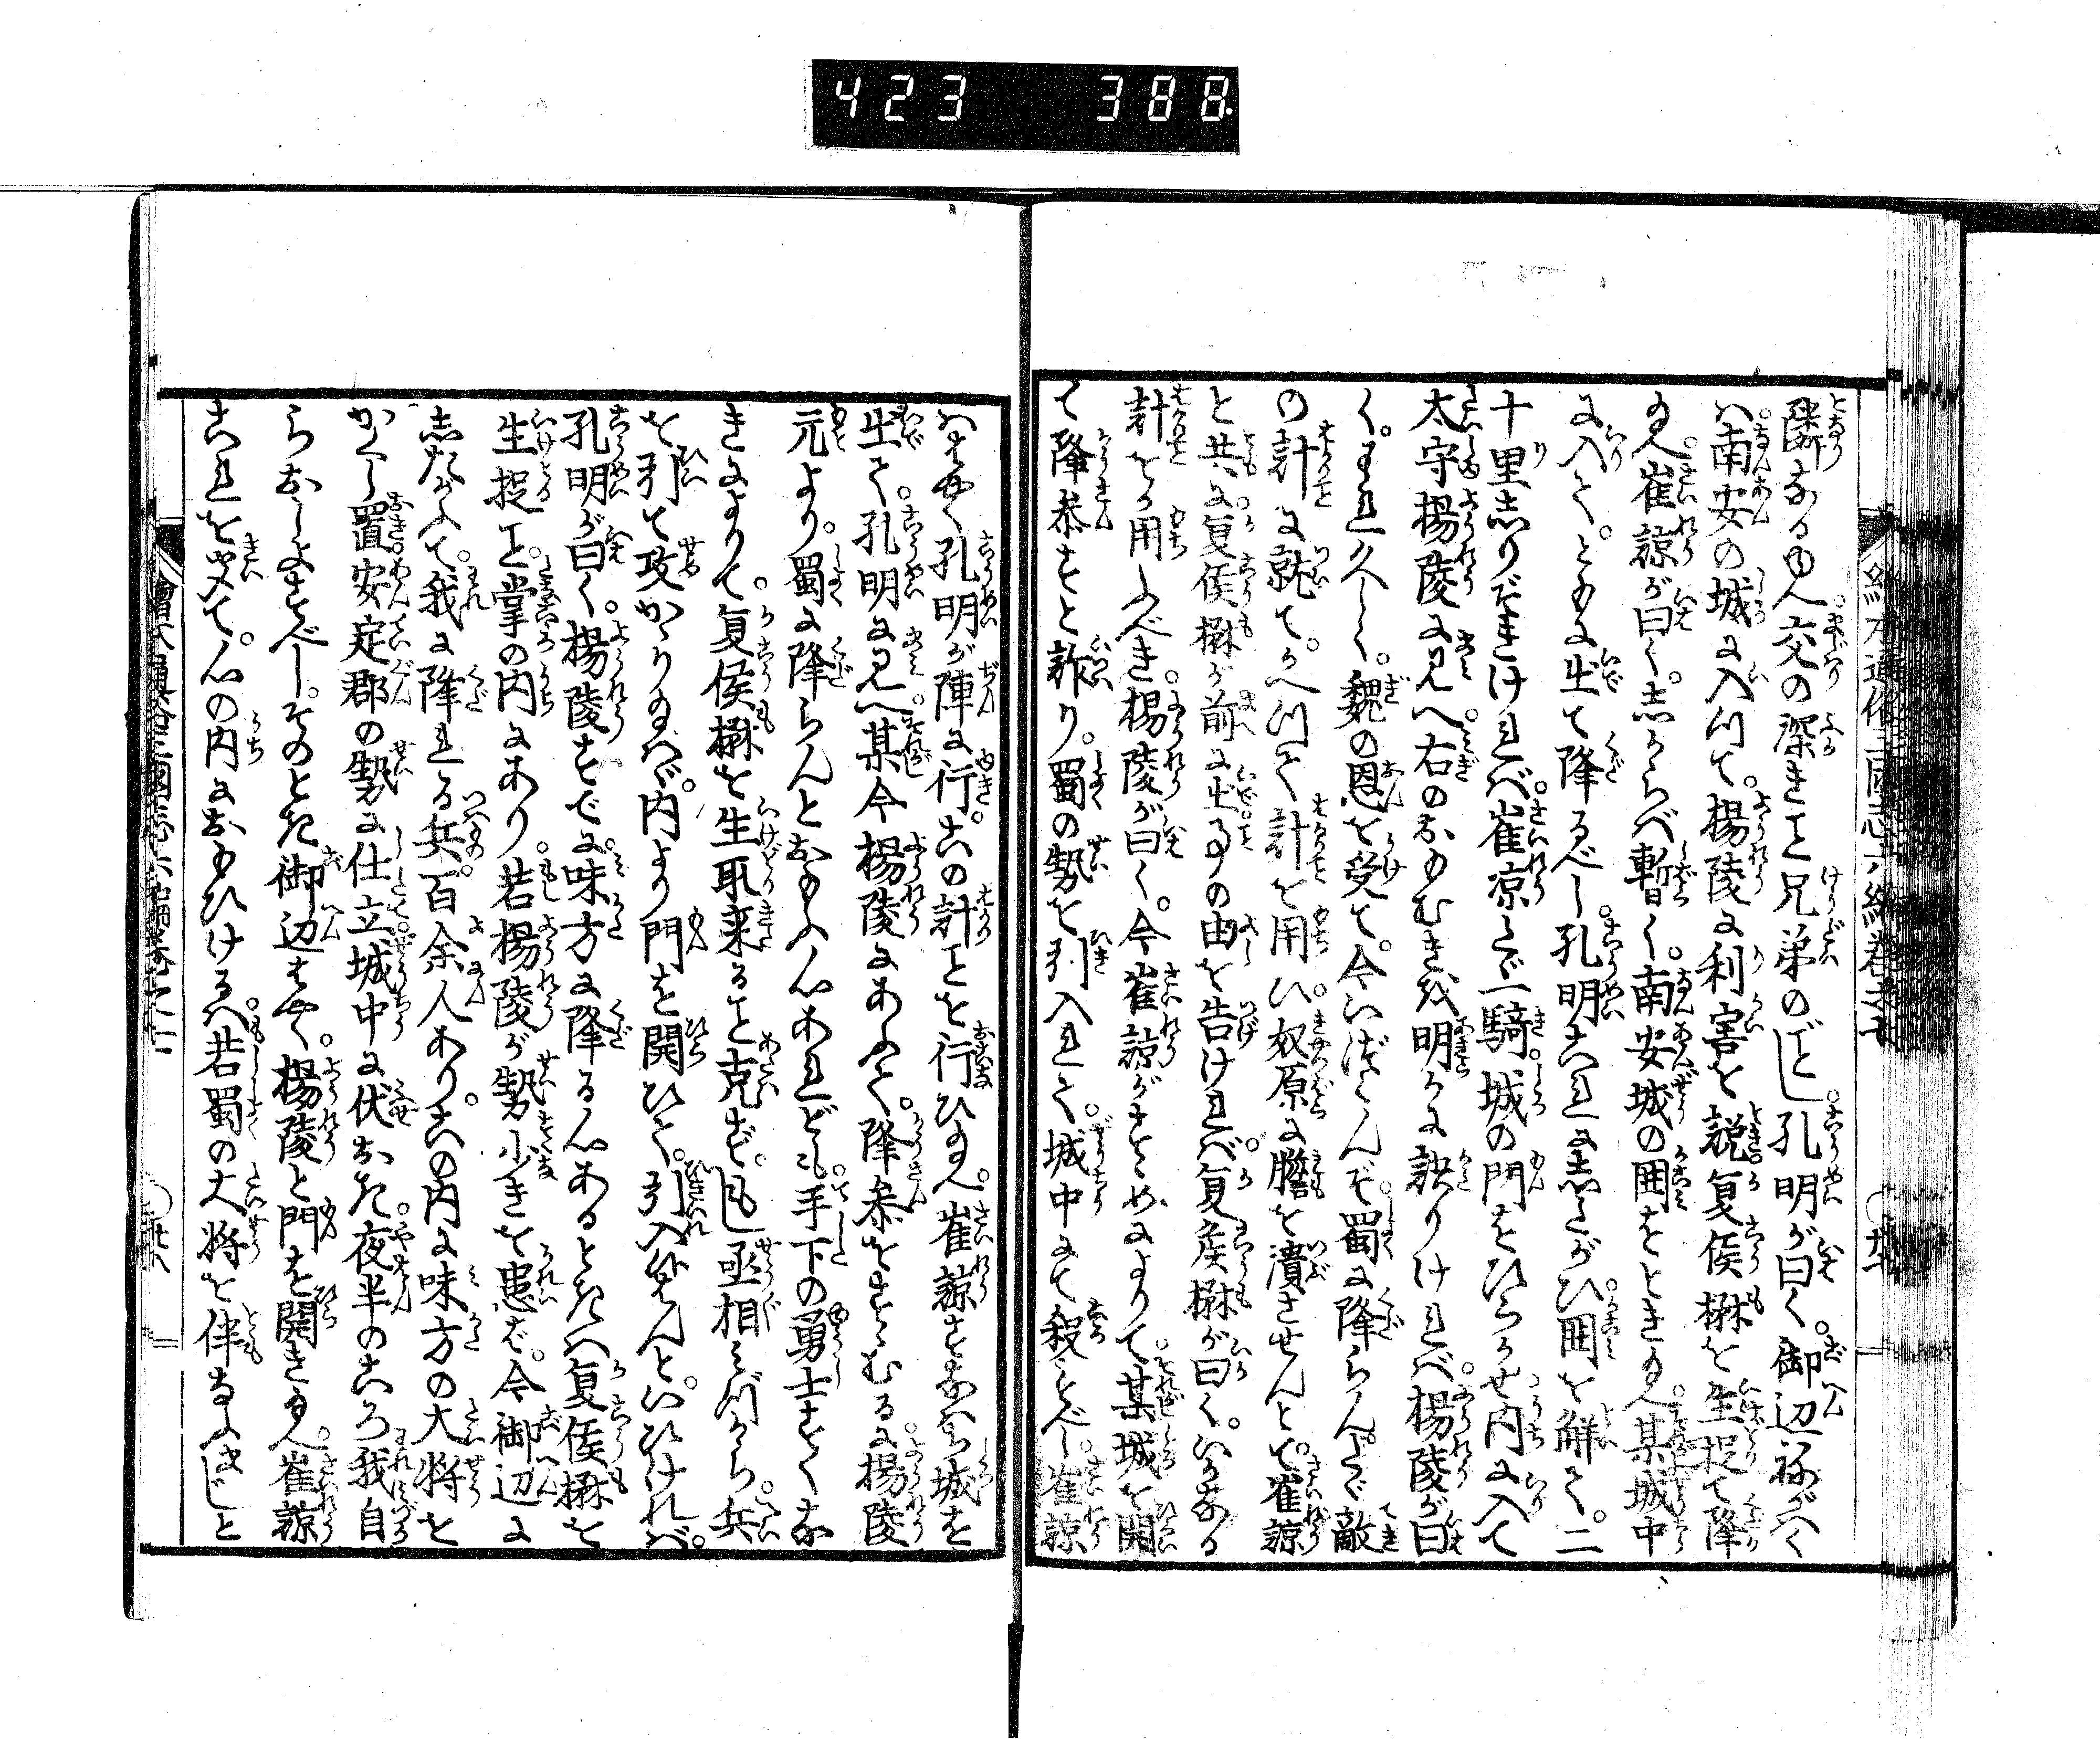 423 388
隣なるゆへ交の深きこと兄弟のごとし孔明が曰く御辺ねがへく
ハ南安の城に入つて楊陵に利害を説夏侯楙を生捉て降
給へ崔諒が曰くしからバ暫く南安城の囲をとき給へ某城中
に入てともに出て降るべし孔明これにしたがひ囲を解て二
十里しりぞきけれバ崔凉たゞ一騎城の門をひらかせ内に入て
太守楊陵に見へ右のおもむき域明かに訣りけれバ楊陵が曰
くわれ久しく魏の恩を受て今いかでか蜀に降らんたゞ敵
の計に就てかへつて計を用ひ奴原に膽を潰させんとて崔諒
と共に夏侯楙が前に出事の由を告けれバ夏侯楙が曰くいかなる
計をか用ふべき楊陵が曰く今崔諒がすゝめによりて某城を開
て降参すと詐り蜀の勢を引入れて城中にて殺すべし崔諒
ハはやく孔明が陣に行この計ことを行ひ給へ崔諒すなハち城を
出て孔明に見へ某今楊陵にあふて降参をすゝむるに楊陵
元より蜀に降らんとおもふ心あれども手下の勇士すくな
きによりて夏侯楙を生取来ること克ずもし丞相みづから兵
を引て攻かゝり給ハゞ内より門を開ひて引入給ハんといひけれバ
孔明が曰く楊陵すでに味方に降る心あるときハ夏侯楙を
生捉こと掌の内にあり若楊陵が勢少きを患ば今御辺に
したがへて我に降れる兵百余人ありこの内に味方の大将を
かくし置安定郡の勢に仕立城中に伏おき夜半のころ我自
らおしよすべしそのとき御辺はやく楊陵と門を開き給へ崔諒
これを聞て心の内におもひけるハ若蜀の大将を伴なふまじと